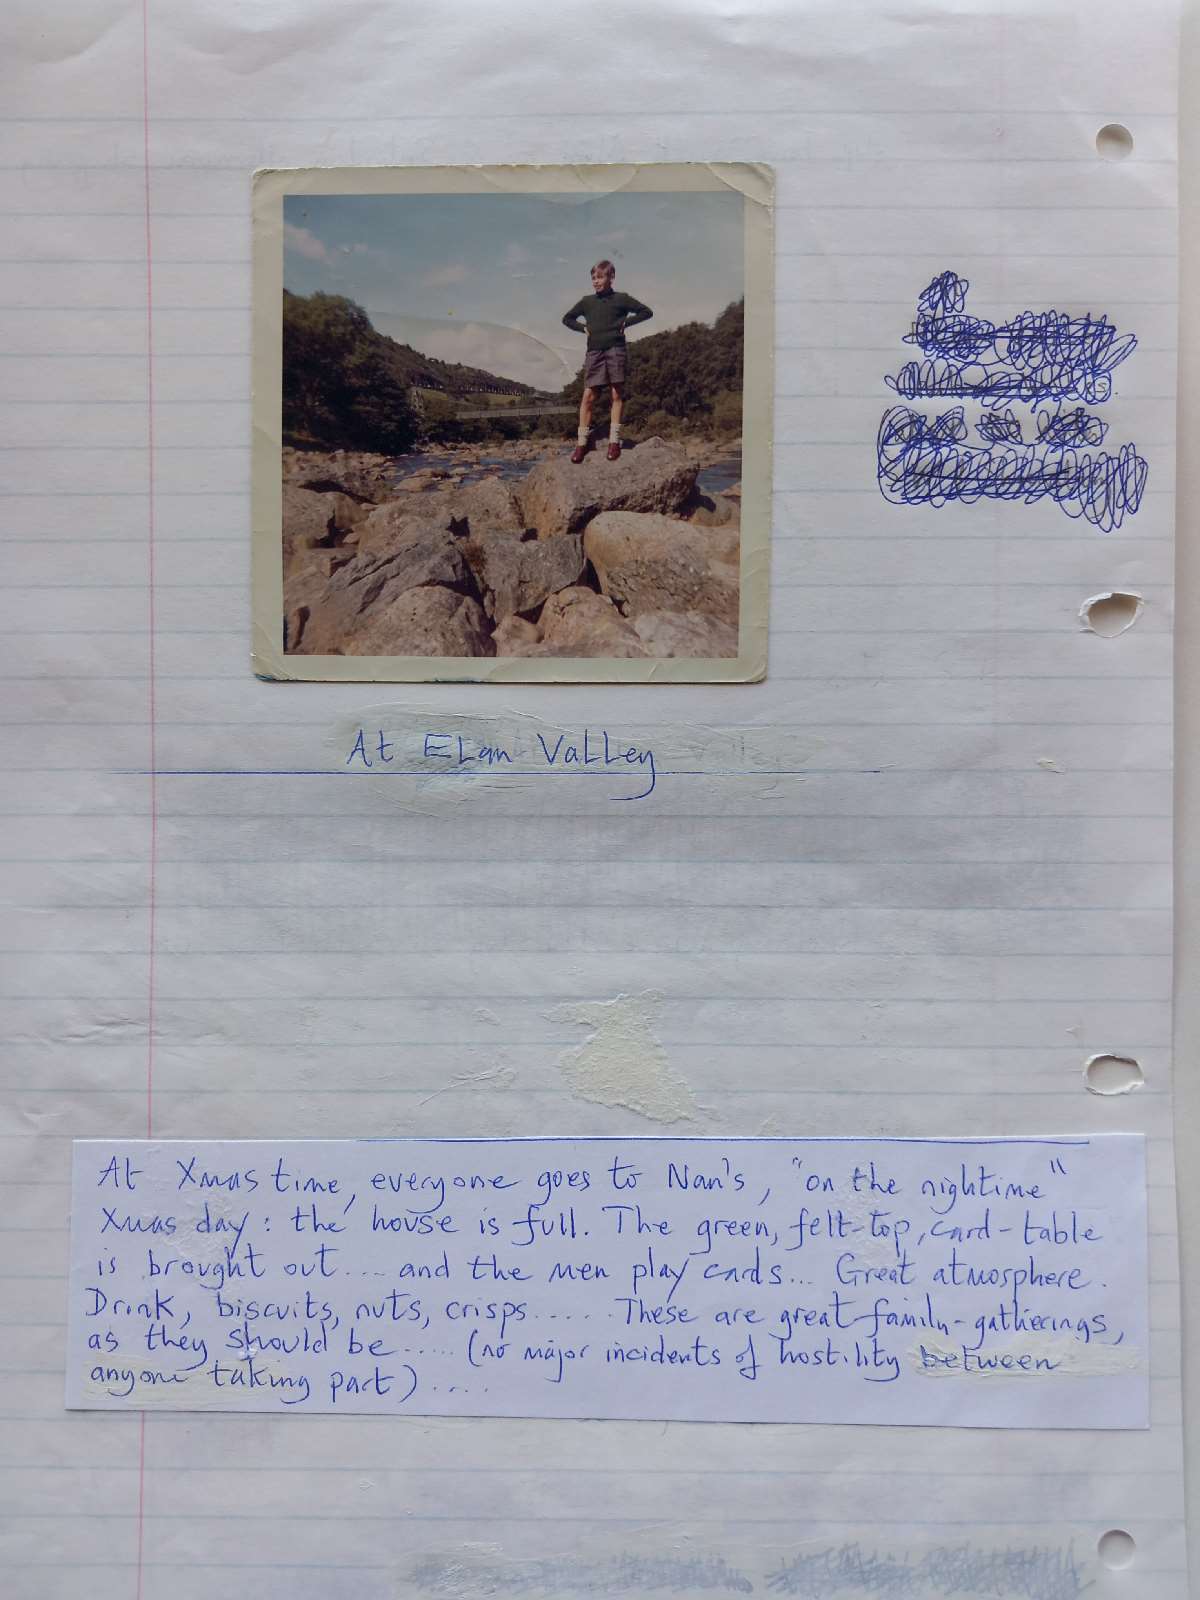 At ELan VaLLey
At Xmas time, everyone goes to Nan's, "on the nightime"
Xmas day: the house is full. The green, felt-top, card-table
is brought out.... and the men play cards... Great atmosphere.
Drink, biscuits, nuts, crisps..... These are great family-gatherings,
as they should be..... (no major incidents of hostility between
anyone taking part)....